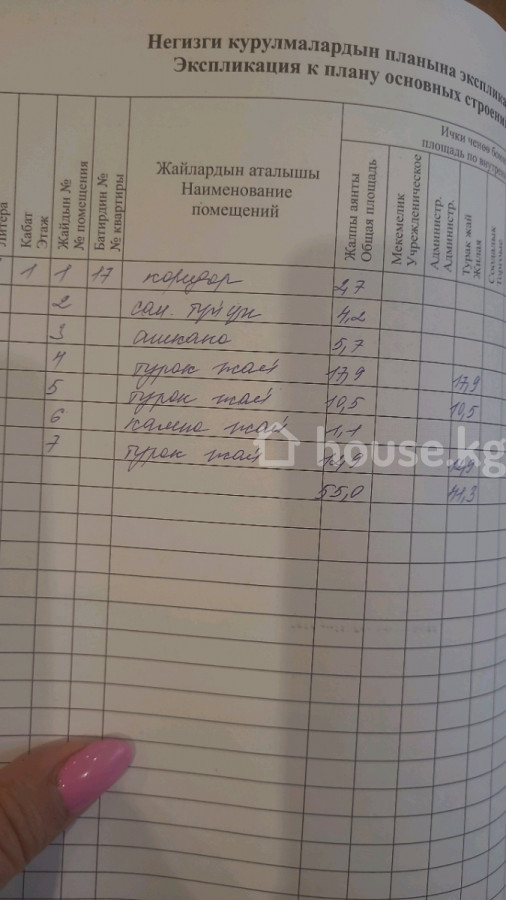 Негизги курулмалардын планына эксплика
Экспликация к плану основных строени
Литера
Кабат
Этаж
Жайдын №
№ помещения
Батирдин №
№ квартиры
Жайлардын аталышы
Наименование
помещений
Ички ченөө
площадь по внутре
Жалпы аянты
Общая площадь
Мекемелик
Учрежденическое
Администр.
Администр.
Турак жай
Жилая
Соодалык
Торговые
1 1 17 коридор 2,7
2 сан. түйүн 4,2
3 ашкана 5,7
4 турак жай 17,9 17,9
5 турак жай 10,5 10,5
6 кампа жай 1,1
7 турак жай
55,0 41,3
house.kg